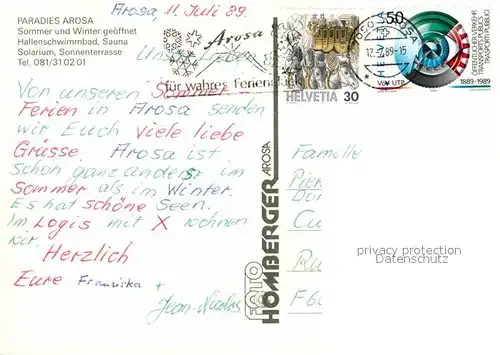 PARADIES AROSA
Sommer und Winter geöffnet
Hallenschwimmbad, Sauna
Solarium, Sonnenterrasse
Tel. 081/31 02 01
Arosa, 11. Juli 89.
Von unseren Sommer
Ferien in Arosa senden
wir Euch viele liebe
Grüsse. Arosa ist
schon ganz anders im
Sommer als im Winter.
Es hat schöne Seen.
Im Logis mit X wohnen
wir.
Herzlich
Eure Franziska +
Jean-Nicolas
Arosa
für wahres Ferien
HELVETIA 30
AROSA
12.7.89-15
50
HELVETIA
VöV UTP
ÖFFENTLICHER VERKEHR
TRANSPORTS PUBLICS
TRASPORTI PUBBLICI
1889-1989
FOTO HOMBERGER AROSA
Famille
privacy protection
Datenschutz